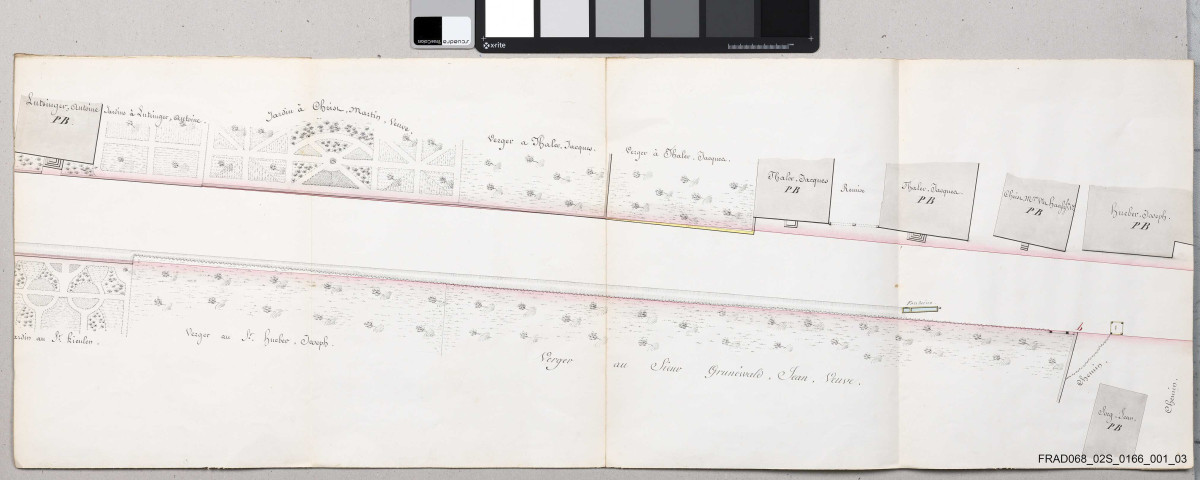 x-rite
Lutringer, Antoine
PB
Jardins à Lutringer, Antoine.
Jardin à Christ, Martin, Veuve.
Verger à Thaler, Jacques.
Verger à Thaler, Jacques.
Thaler, Jacques
PB
Remise
Thaler, Jacques
PB
PB
Hueber, Joseph.
PB
Fontaine
Jardin au Sr.
Verger au Sr. Hueber, Joseph.
Verger au Sieur Grunéwald, Jean, Veuve.
Chemin.
Chemin.
Jean
PB
FRAD068_02S_0166_001_03